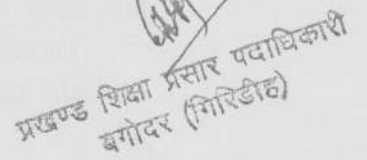 प्रखण्ड शिक्षा प्रसार पदाधिकारी
बगोदर (गिरिडीह)